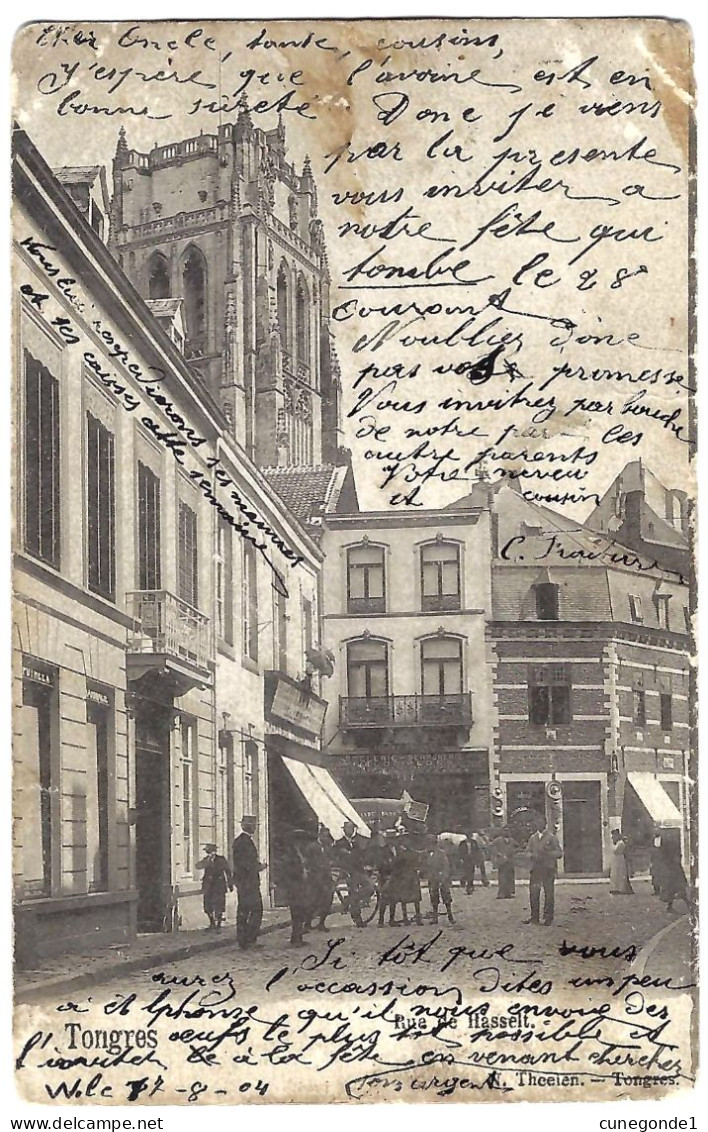 Cher Oncle, tante, cousins,
J'espère que l'avoine est en
bonne sureté Donc je viens
par la presente
vous inviter a
notre fête qui
tombe le 28e
courant
N'oubliez donc
pas vos promesse
Vous invitrez par bouche
de notre part les
autre parents
Votre neveu
et cousin
C.
Nous lui renverrons ses mannes
et ses caisses cette semaine
Si tôt que vous
aurez l'occassion dites un peu
à et lphonse qu'il nous envoie des
oeufs le plus tôt possible et
l'inviter le à la fête en venant chercher
son argent
W. le 17-8-04
Tongres
Rue de Hasselt.
N. Theelen. — Tongres.
cunegonde1